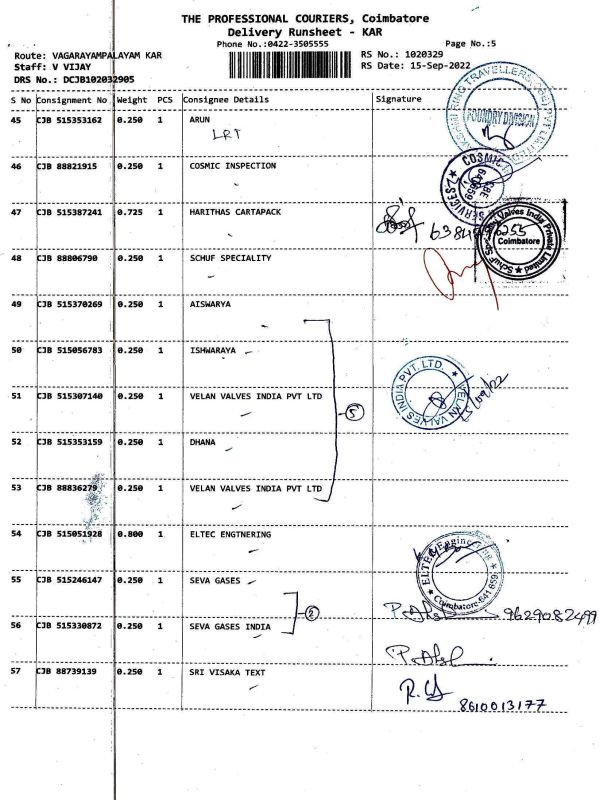 THE PROFESSIONAL COURIERS, Coimbatore
Delivery Runsheet - KAR
Phone No.:0422-3505555 Page No.:5
Route: VAGARAYAMPALAYAM KAR RS No.: 1020329
Staff: V VIJAY RS Date: 15-Sep-2022
DRS No.: DCJB102032905
S No Consignment No Weight PCS Consignee Details Signature
45 CJB 515353162 0.250 1 ARUN
LRT
FOUNDRY DIVISION
46 CJB 88821915 0.250 1 COSMIC INSPECTION
COSMIC SERVICES
47 CJB 515387241 0.725 1 HARITHAS CARTAPACK
Coimbatore
48 CJB 88806790 0.250 1 SCHUF SPECIALITY
49 CJB 515370269 0.250 1 AISWARYA
50 CJB 515056783 0.250 1 ISHWARAYA
VELAN VALVES INDIA PVT. LTD.
51 CJB 515307140 0.250 1 VELAN VALVES INDIA PVT LTD
5
52 CJB 515353159 0.250 1 DHANA
53 CJB 88836279 0.250 1 VELAN VALVES INDIA PVT LTD
54 CJB 515051928 0.800 1 ELTEC ENGTNERING
55 CJB 515246147 0.250 1 SEVA GASES
Coimbatore-641 659
2
9629082499
56 CJB 515330872 0.250 1 SEVA GASES INDIA
57 CJB 88739139 0.250 1 SRI VISAKA TEXT
8610013177